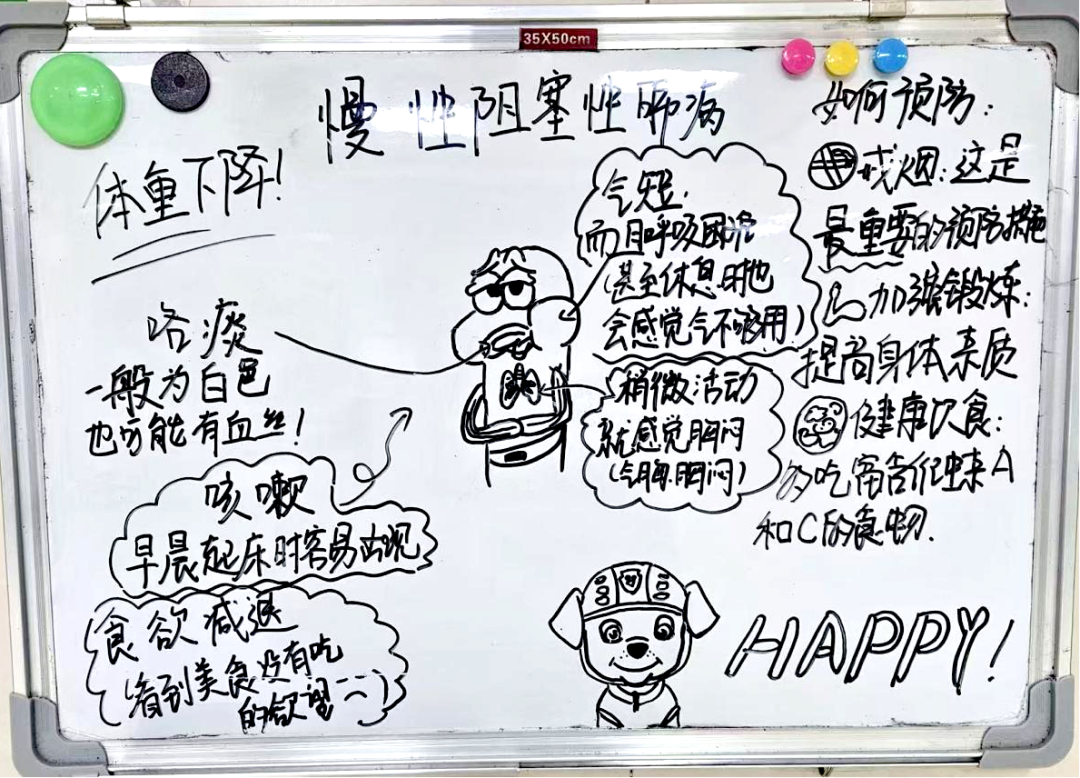 35X50cm
慢性阻塞性肺病
体重下降!
咯痰
一般为白色
也可能有血丝!
咳嗽
早晨起床时容易出现
食欲减退
(看到美食没有吃
的欲望
气短.
而且呼吸困难
(甚至休息时也
会感觉气不够用)
稍微活动
就感觉胸闷
(气胸.胸闷)
如何预防:
戒烟:这是
最重要的预防措施
加强锻炼:
提高身体素质
健康饮食:
多吃富含维生素A
和C的食物.
HAPPY!